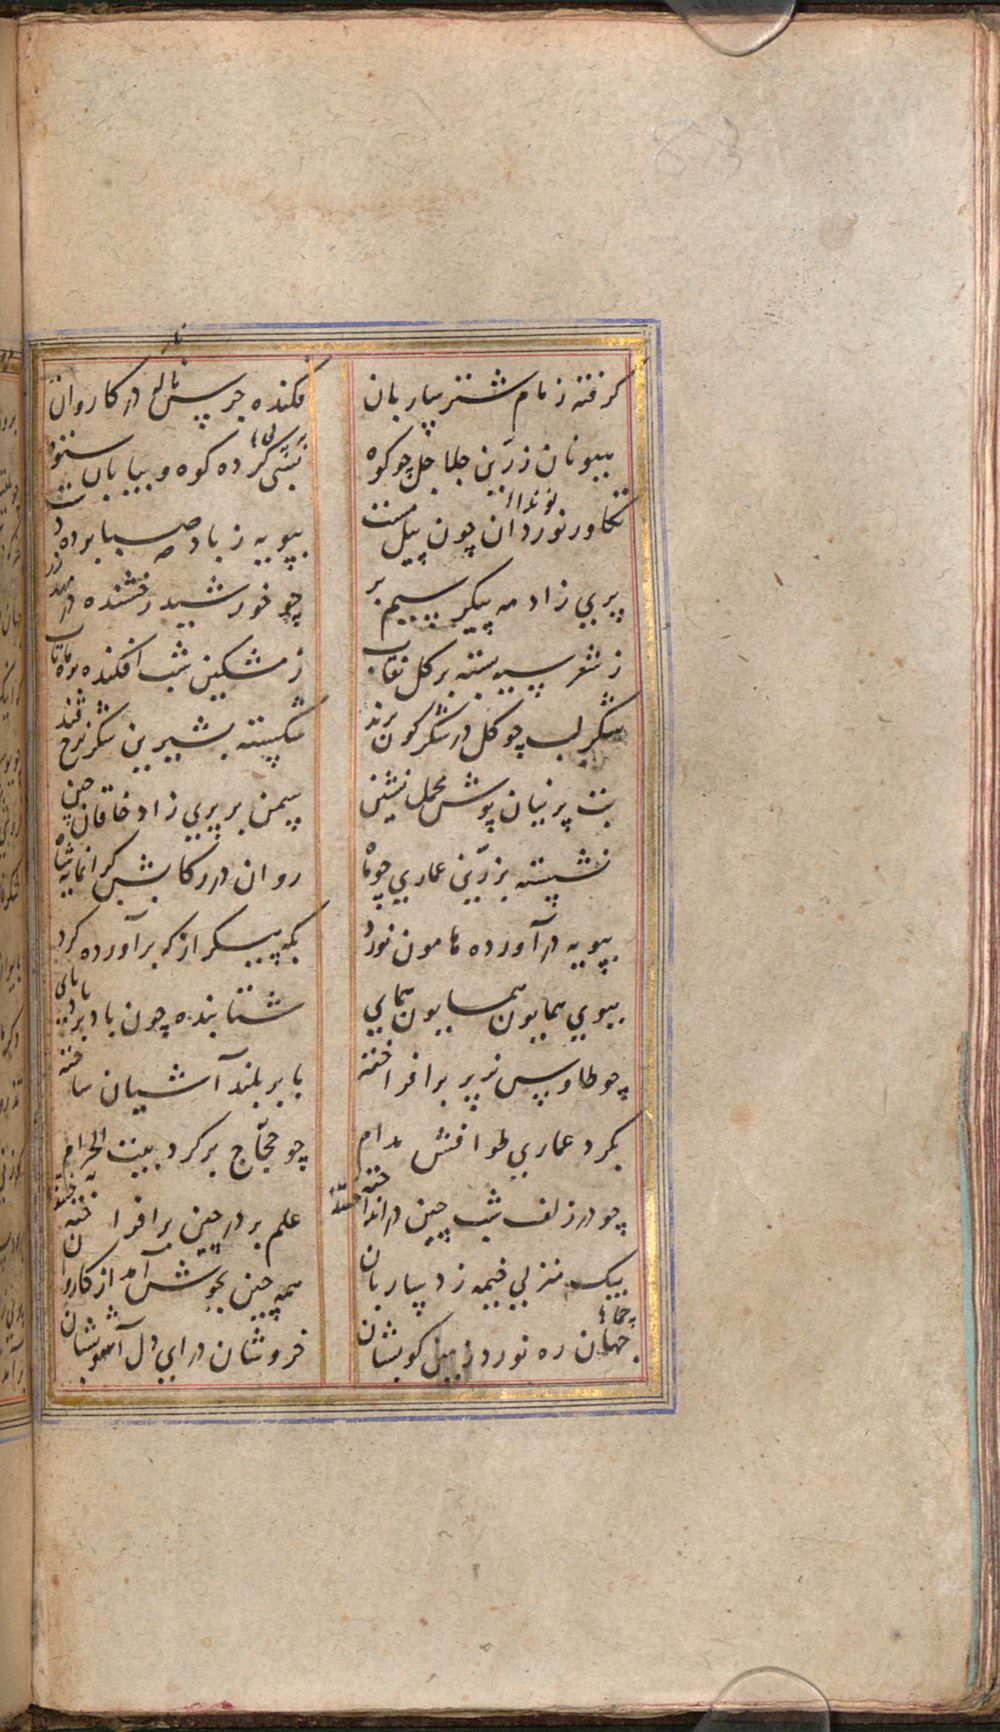 گرفته زمام شتر ساربان
فکنده جرس ناله در کاروان
هیونان زرّین جلاجل چو کوه
بسی کرده کوه و بیابان ستوه
تکاور نوردان چون پیل مست
بپویه ز باد صبا برده دست
پری زاد مه پیکر سیم بر
چو خورشید رخشنده در مهد زر
ز شعر سیه بسته بر گل نقاب
ز مشکین شب افکنده بر ماه تاب
شکر لب چو گل در شکرگون پرند
شکسته بشیرین شکر نرخ قند
بت پرنیان پوش محمل نشین
سمن بر پری زاد خاقان چین
نشسته بزرّین عماری چو ماه
روان در رکابش گرانمایه شاه
بپویه درآورده هامون نورد
که پیکر از که برآورده گرد
بسوی همایون همایون همای
شتابنده چون باد بادپای
چو طاوس نر پر برافراخته
بابر بلند آشیان ساخته
بگرد عماری طوافش مدام
چو حجّاج بر گرد بیت الحرام
چو در زلف شب چین درانداخته
علم بر در چین برافراخته
بیک منزلی خیمه زد ساربان
همه چین بجوش آمد از کاروان
جهان ره نورد زمین کوبشان
خروشان درای دل آشوبشان